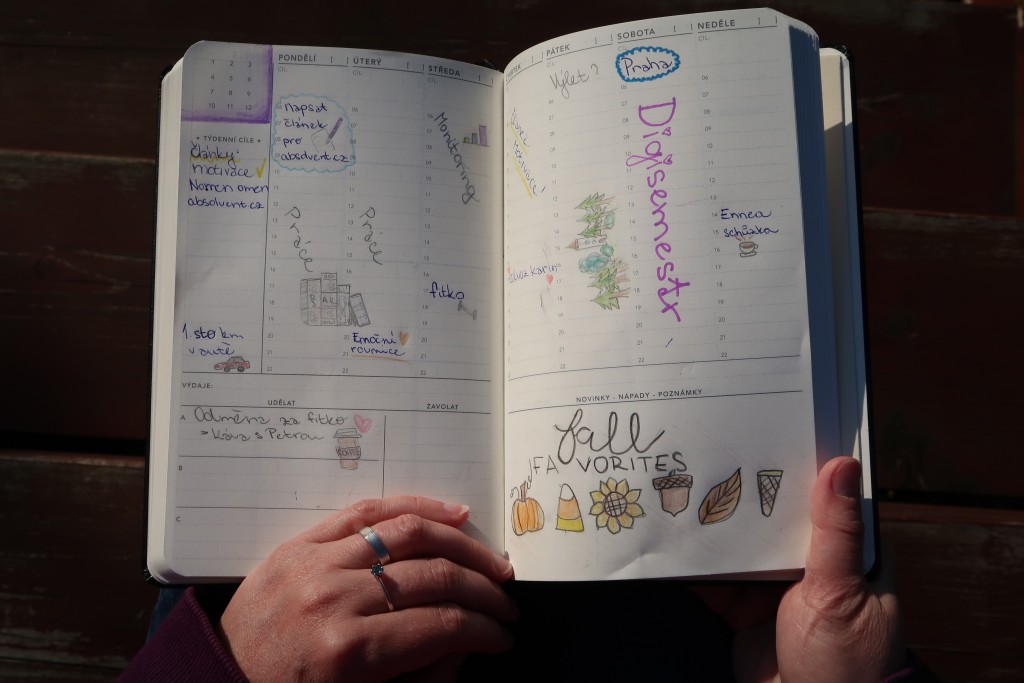 1 2 3
4 5 6
7 8 9
10 11 12
TÝDENNÍ CÍLE
Články
motivace
Nomen omen
absolvent.cz
1. sto km
v autě
PONDĚLÍ
CÍL:
napsat
článek
pro
absolvent.cz
Práce
ÚTERÝ
CÍL:
Práce
Emoční
rovnice
STŘEDA
CÍL:
Monitoring
fitko
VÝDAJE:
UDĚLAT
ZAVOLAT
A
Odměna za fitko
Káva s Petrou
KOFFE
B
C
PÁTEK
CÍL:
Výlet?
SOBOTA
CÍL:
Praha
Digisemestr
NEDĚLE
CÍL:
Ennea
schůzka
NOVINKY - NÁPADY - POZNÁMKY
fall
FAVORITES